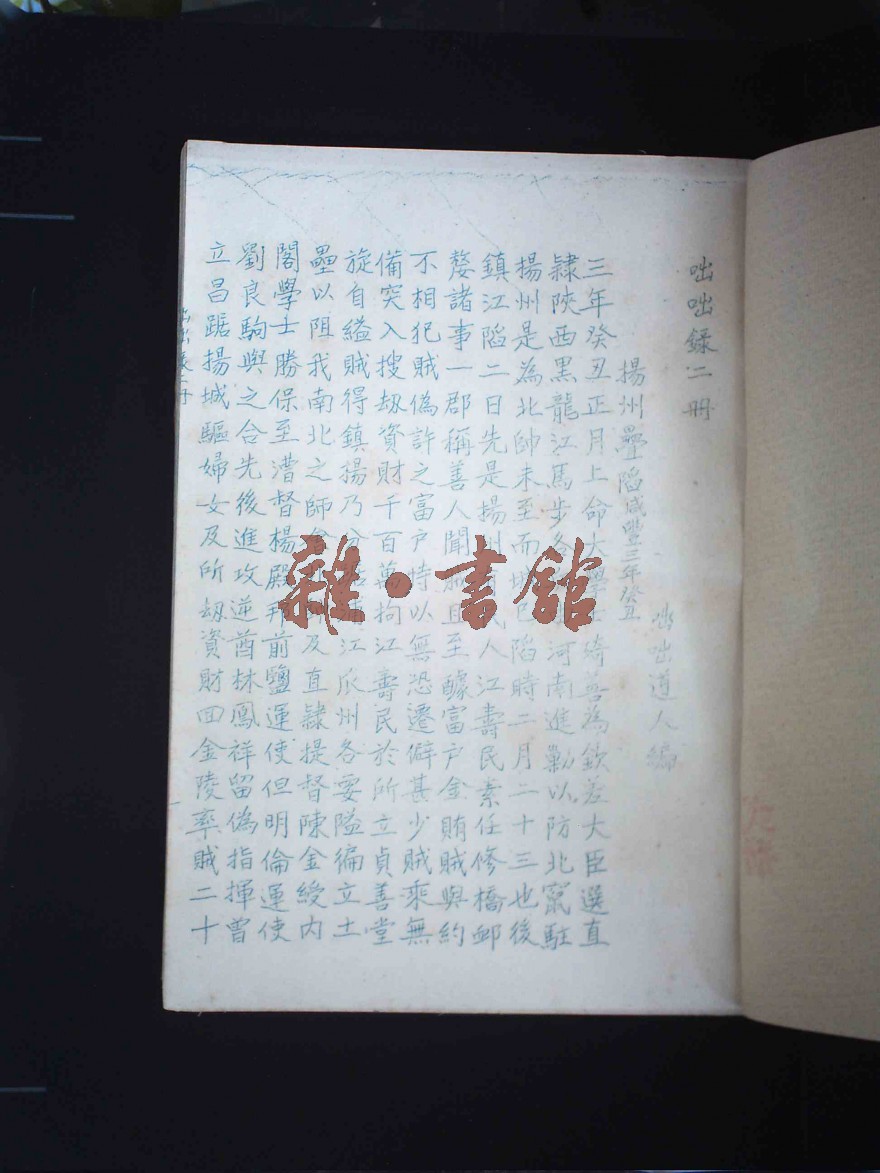 咄咄録二冊
咄咄道人編
揚州疊陷咸豐三年癸丑
三年癸丑正月上命大學士琦善為欽差大臣選直
隸陜西黑龍江馬步各河南進勦以防北竄駐
揚州是為北帥未至而城已陷時二月二十三也後
鎮江陷二日先是揚州人江壽民素任修橋郵
嫠諸事一郡稱善人聞賊且至醵富户金賄賊與約
不相犯賊偽許之富户恃以無恐遷僻甚少賊乘無
備突入搜劫資財千百萬拘江壽民於所立貞善堂
旋自縊賊得鎮揚乃分江瓜州各要隘徧立土
壘以阻我南北之師會及直隸提督陳金綬内
閣學士勝保至漕督楊殿邦前鹽運使但明倫運使
劉良駒與之合先後進攻逆酋林鳳祥留偽指揮曾
立昌踞揚城驅婦女及所劫資財回金陵率賊二十
雜·書館